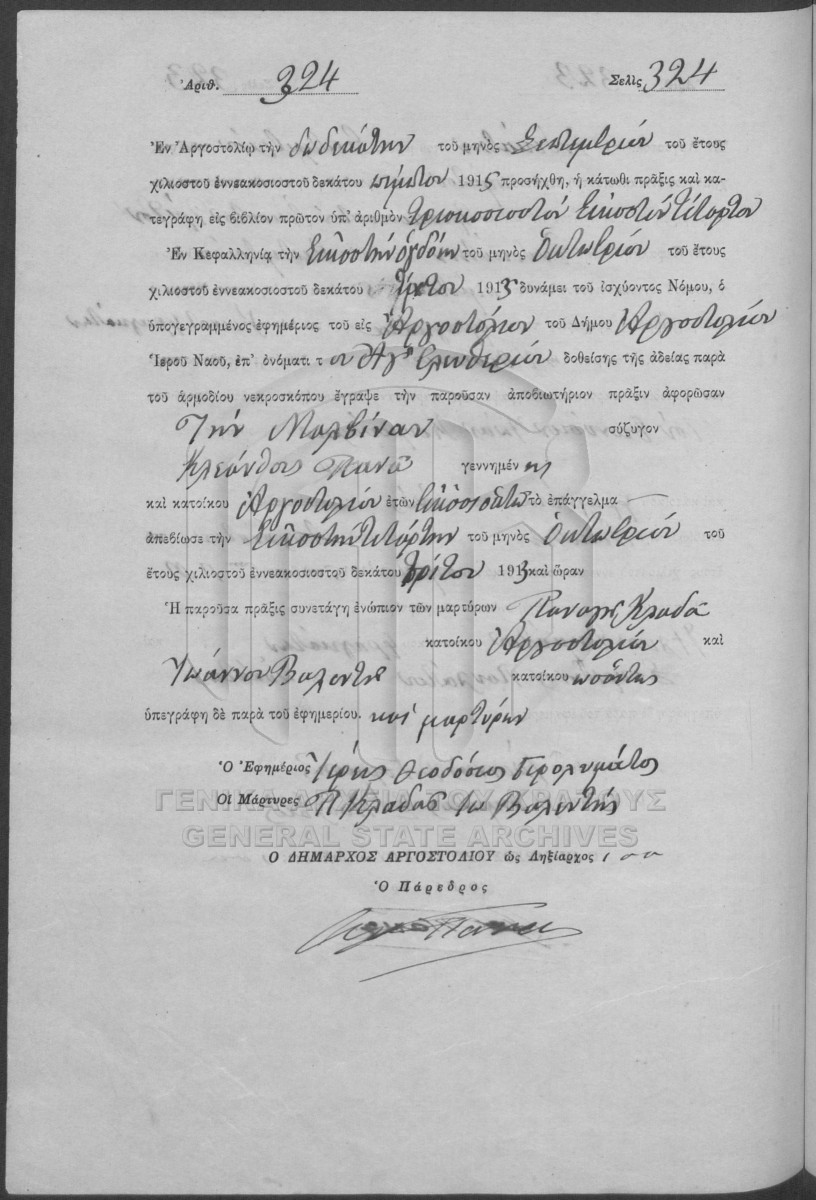 Ἀριθ. 324 Σελὶς 324
Ἐν Ἀργοστολίῳ τὴν δωδεκάτην τοῦ μηνὸς Σεπτεμβρίου τοῦ ἔτους
χιλιοστοῦ ἐννεακοσιοστοῦ δεκάτου πέμπτου 1915 προσήχθη, ἡ κάτωθι πρᾶξις καὶ κα-
τεγράφη εἰς βιβλίον πρῶτον ὑπ' ἀριθμὸν τριακοσιοστόν εἰκοστόν τέταρτον
Ἐν Κεφαλληνίᾳ τὴν εἰκοστήν ὀγδόην τοῦ μηνὸς Ὀκτωβρίου τοῦ ἔτους
χιλιοστοῦ ἐννεακοσιοστοῦ δεκάτου τρίτου 1913 δυνάμει τοῦ ἰσχύοντος Νόμου, ὁ
ὑπογεγραμμένος ἐφημέριος τοῦ εἰς Ἀργοστόλιον τοῦ Δήμου Ἀργοστολίου
Ἱεροῦ Ναοῦ, ἐπ' ὀνόματι τ ου Ἁγ Ελευθερίου δοθείσης τῆς ἀδείας παρὰ
τοῦ ἁρμοδίου νεκροσκόπου ἔγραψε τὴν παροῦσαν ἀποβιωτήριον πρᾶξιν ἀφορῶσαν
Τήν Μαλβίναν σύζυγον
Κλεάνθους Πανᾶ γεννημέν ης
καὶ κατοίκου Ἀργοστολίου ἐτῶν τὸ ἐπάγγελμα —
ἀπεβίωσε τὴν εἰκοστήν τετάρτην τοῦ μηνὸς Ὀκτωβρίου τοῦ
ἔτους χιλιοστοῦ ἐννεακοσιοστοῦ δεκάτου τρίτου 1913 καὶ ὥραν
Ἡ παροῦσα πρᾶξις συνετάγη ἐνώπιον τῶν μαρτύρων Παναγῆ Κλαδᾶ
κατοίκου Ἀργοστολίου καὶ
Ἰωάννου Βαλεντῆ κατοίκου ὡσαύτως
ὑπεγράφη δὲ παρὰ τοῦ ἐφημερίου. καί μαρτύρων
Ὁ Ἐφημέριος Ἱερεύς Θεοδόσιος Γερολυμάτος
Οἱ Μάρτυρες Π Κλαδᾶς Ἰω Βαλεντής
ΓΕΝΙΚΑ ΑΡΧΕΙΑ ΤΟΥ ΚΡΑΤΟΥΣ
GENERAL STATE ARCHIVES
Ο ΔΗΜΑΡΧΟΣ ΑΡΓΟΣΤΟΛΙΟΥ ὡς Ληξίαρχος
Ὁ Πάρεδρος